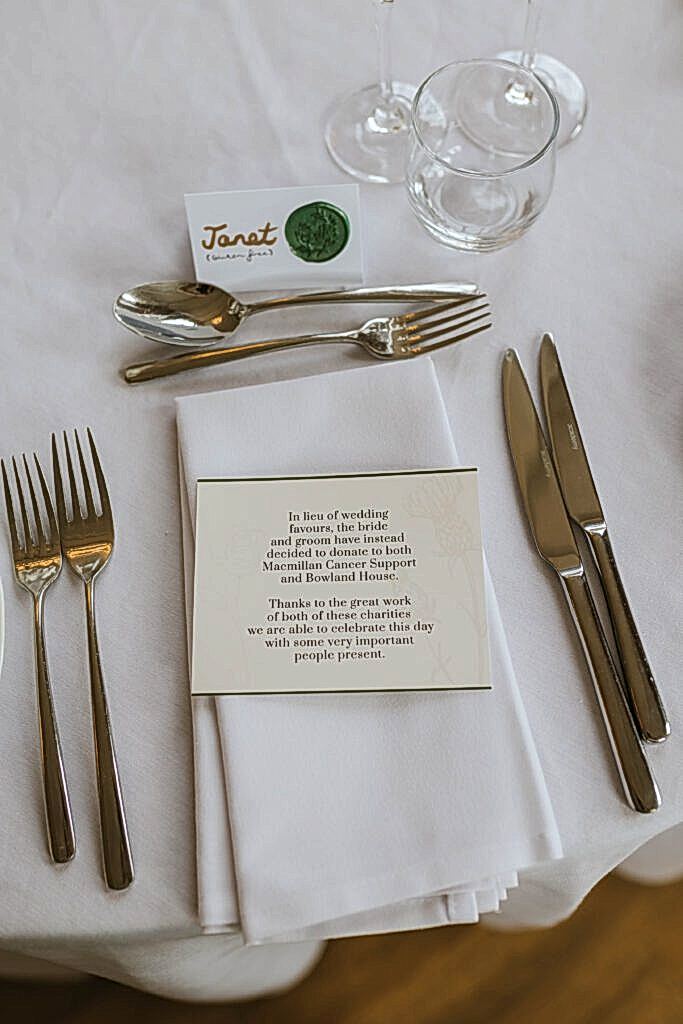 Janet
(Gluten free)
In lieu of wedding
favours, the bride
and groom have instead
decided to donate to both
Macmillan Cancer Support
and Bowland House.
Thanks to the great work
of both of these charities
we are able to celebrate this day
with some very important
people present.